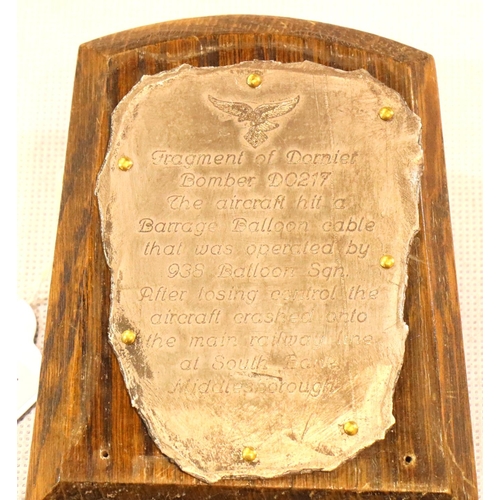 Fragment of Dornier
Bomber DO217
The aircraft hit a
Barrage Balloon cable
that was operated by
938 Balloon Sqn.
After losing control the
aircraft crashed onto
the main railway line
at South Bank
Middlesborough